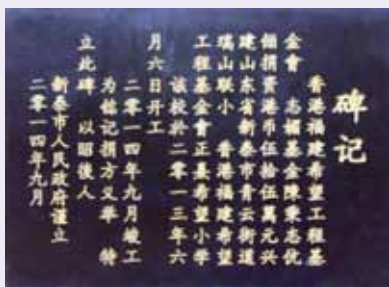 碑记
香港福建希望工程基
金會 志媚基金陳秉志伉
儷捐资港币伍拾伍萬元兴
建山东省新泰市青云街道
瑞山联小 香港福建希望
工程基金會正嘉希望小学
该校於二零一三年六
月六日开工
二零一四年九月竣工
为铭记捐方义举 特
立此碑 以昭後人
新泰市人民政府谨立
二零一四年九月